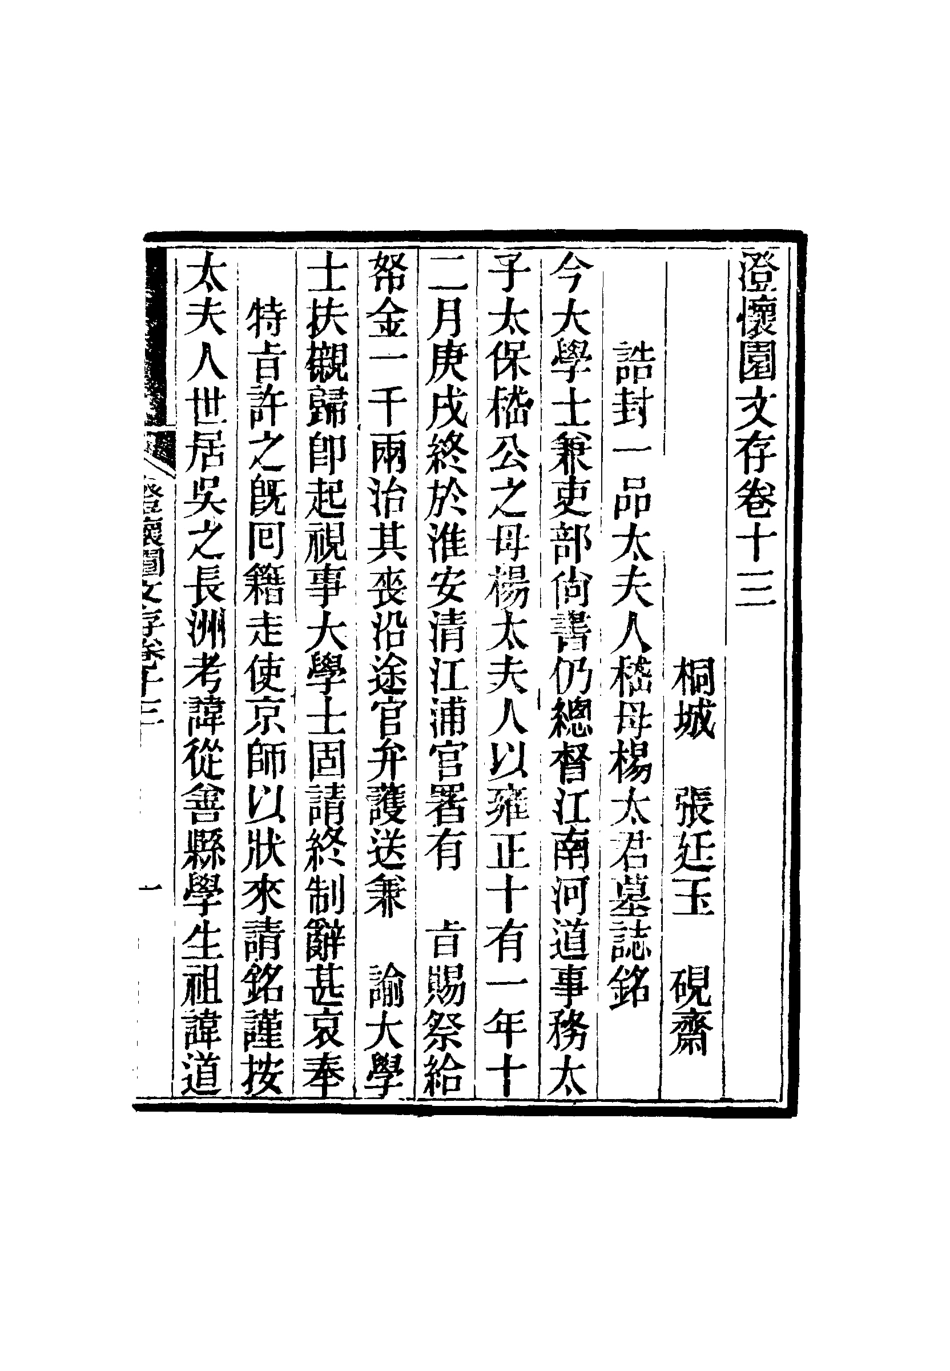 澄懷園文存卷十三
桐城　張廷玉　硯齋
誥封一品太夫人嵇母楊太君墓誌銘
今大學士兼吏部尙書仍總督江南河道事務太
子太保嵇公之母楊太夫人以雍正十有一年十
二月庚戌終於淮安清江浦官署有　㫖賜祭給
帑金一千兩治其喪沿途官弁護送兼　諭大學
士扶櫬歸卽起視事大學士固請終制辭甚哀奉
特㫖許之旣囘籍走使京師以狀來請銘謹按
太夫人世居吳之長洲考諱從善縣學生祖諱道
澄懷園文存卷十三
一